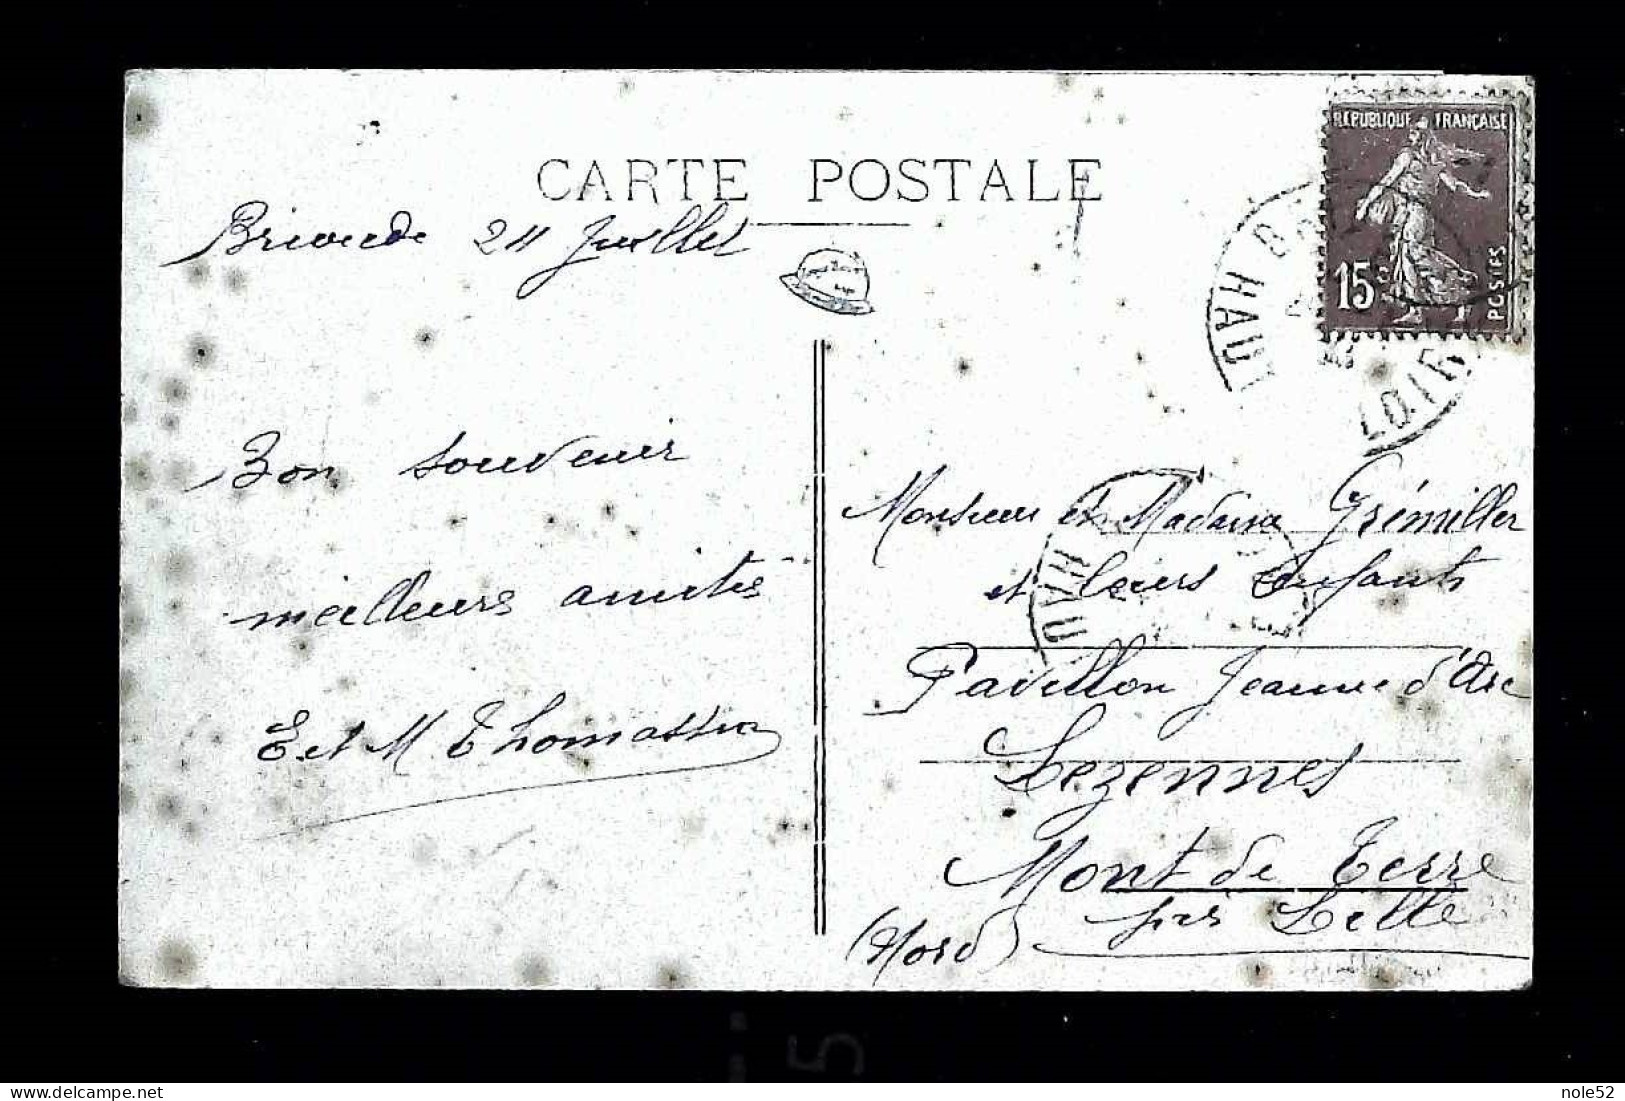 CARTE POSTALE
Brioude 24 Juillet
Bon souvenir
meilleurs amitiés
E. et M Thomassin
REPUBLIQUE FRANÇAISE
15c
POSTES
HAUTE
LOIRE
Monsieur et Madame Grémiller
et leurs enfants
HAU
Pavillon Jeanne d'Arc
Lezennes
Mont de Terre
près Lille
(Nord)
5
nole52